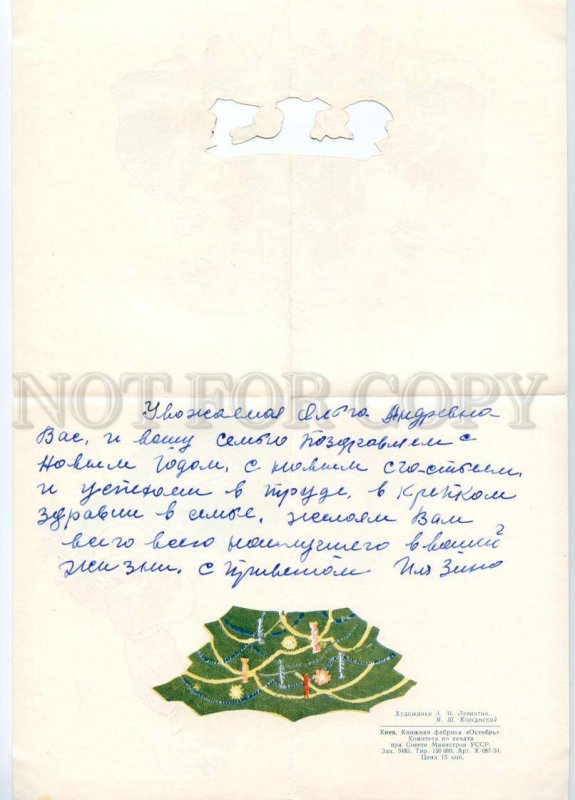 NOT FOR COPY
Уважаемая Ольга Андревна
Вас, и вашу семью поздравляем с
Новым Годом, с новым счастьем,
и успехом в труде, в крепком
здравии в семье, желаем Вам
всего всего наилучшего в вашей
жизни, с приветом
Художники А. М. Левантин,
Я. Ш. Корсунский
Киев. Книжная фабрика «Октябрь»
Комитета по печати
при Совете Министров УССР.
Зак. 3483. Тир. 150 000. Арт. К 087-54.
Цена 15 коп.